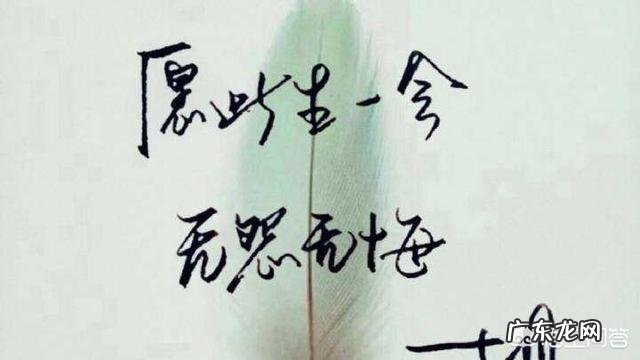 愿此生一会
无怨无悔
广东龙网